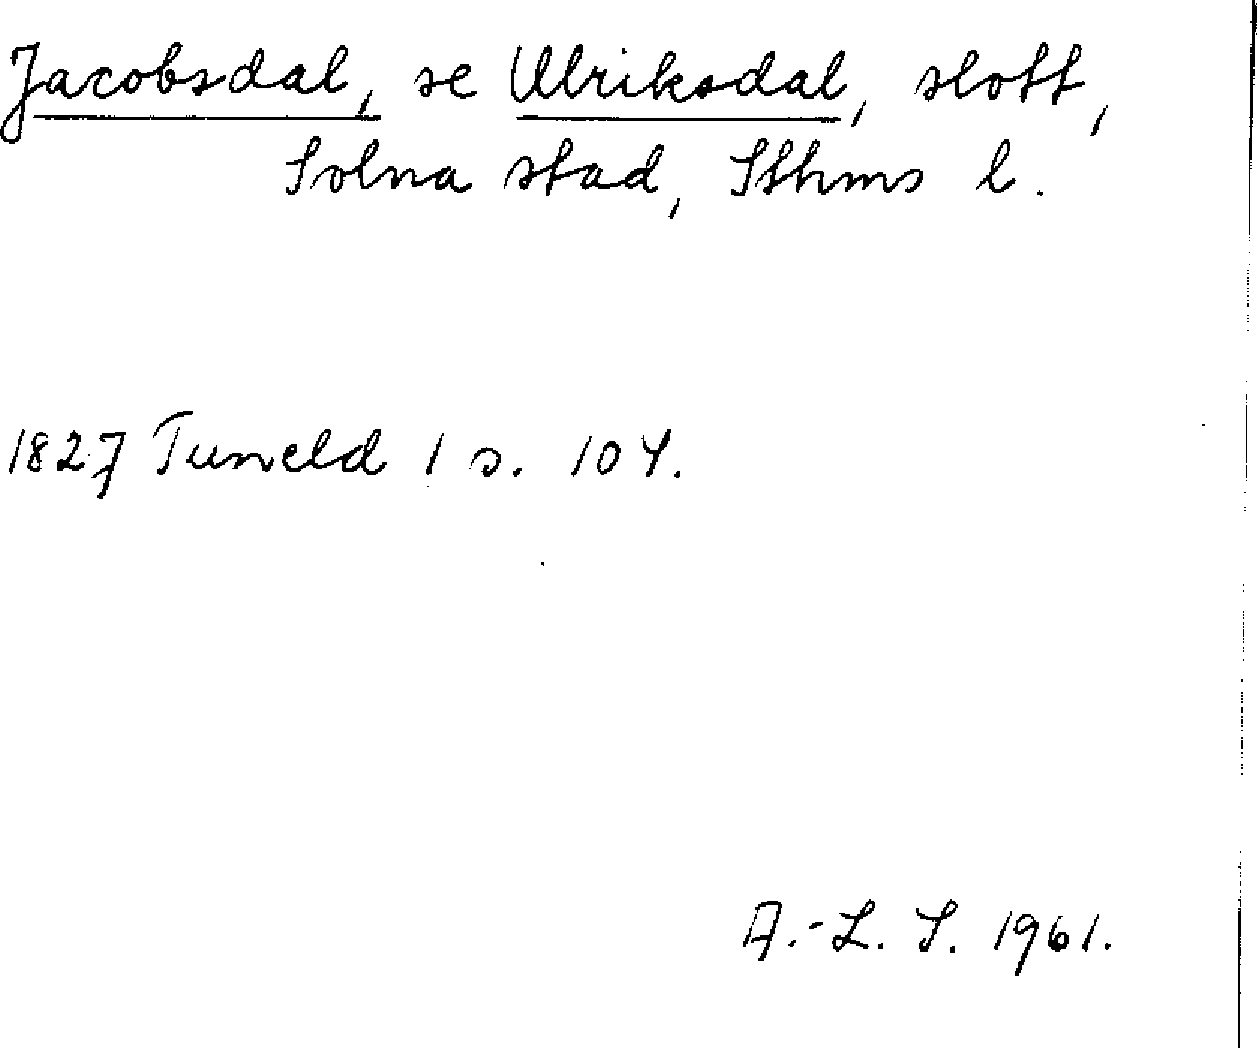 Jacobsdal, se Ulriksdal, slott,
Solna stad, Sthms l.
1827 Tuneld 1 s. 104.
A.-L. S. 1961.